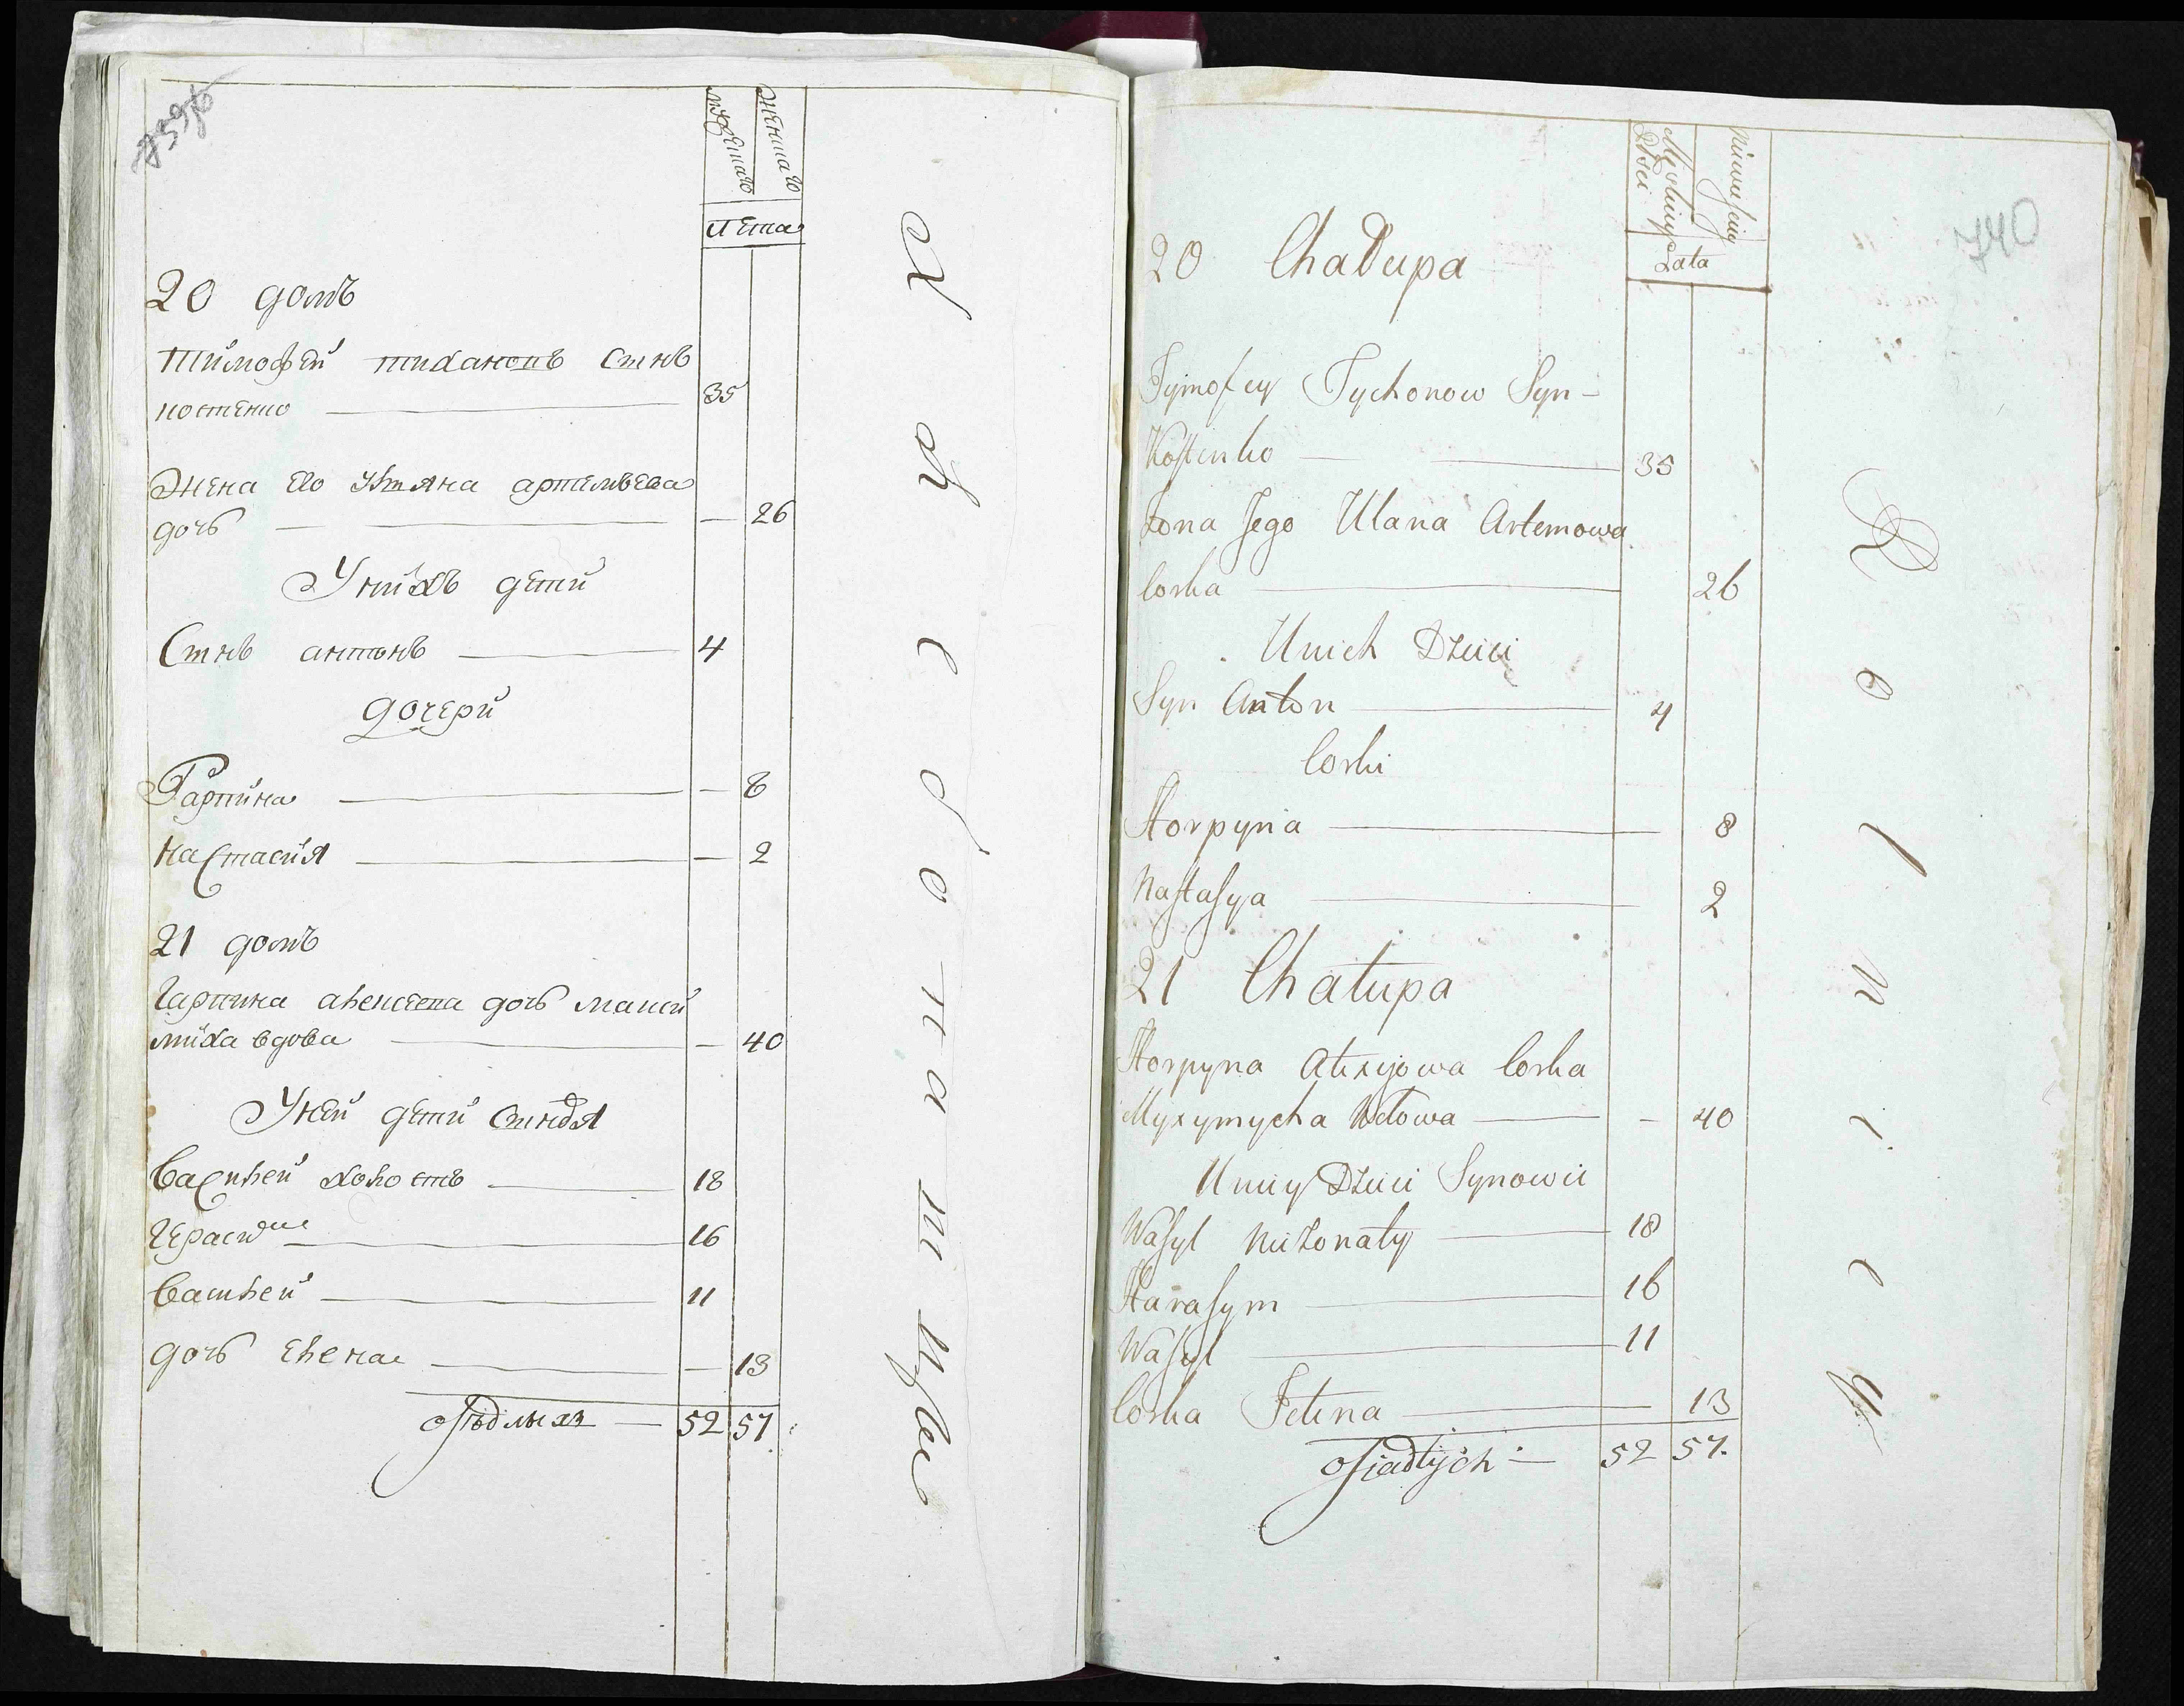 739об
мужескаго
женскаго
лета
20 домъ
Тимофей тихановъ сынъ
костенко 35
жена его Уляна артемьева
дочъ — 26
У нихъ дети
Сынъ антонъ 4
дочери
Гарпина — 8
настасия — 2
21 домъ
Гарпина алексеева дочъ макси
миха вдова — 40
У ней дети сыновя
василей холостъ 18
Герасим 16
василей 11
дочъ елена — 13
осѣдлыхъ — 52 57
740
Męskiey
Płci
Niewieściey
Lata
20 Chałupa
Tymofiey Tychonow Syn
Kostenko 35
Żona Jego Ulana Artemowa
Corka 26
U nich Dzieci
Syn Anton 4
Corki
Horpyna 8
Nastasya 2
21 Chałupa
Horpyna Alexijowa Corka
Myxymycha Wdowa — 40
U niey Dzieci Synowie
Wasyl nieżonaty 18
Harasym 16
Wasyl 11
Corka Fetina 13
osiadłych — 52 57.